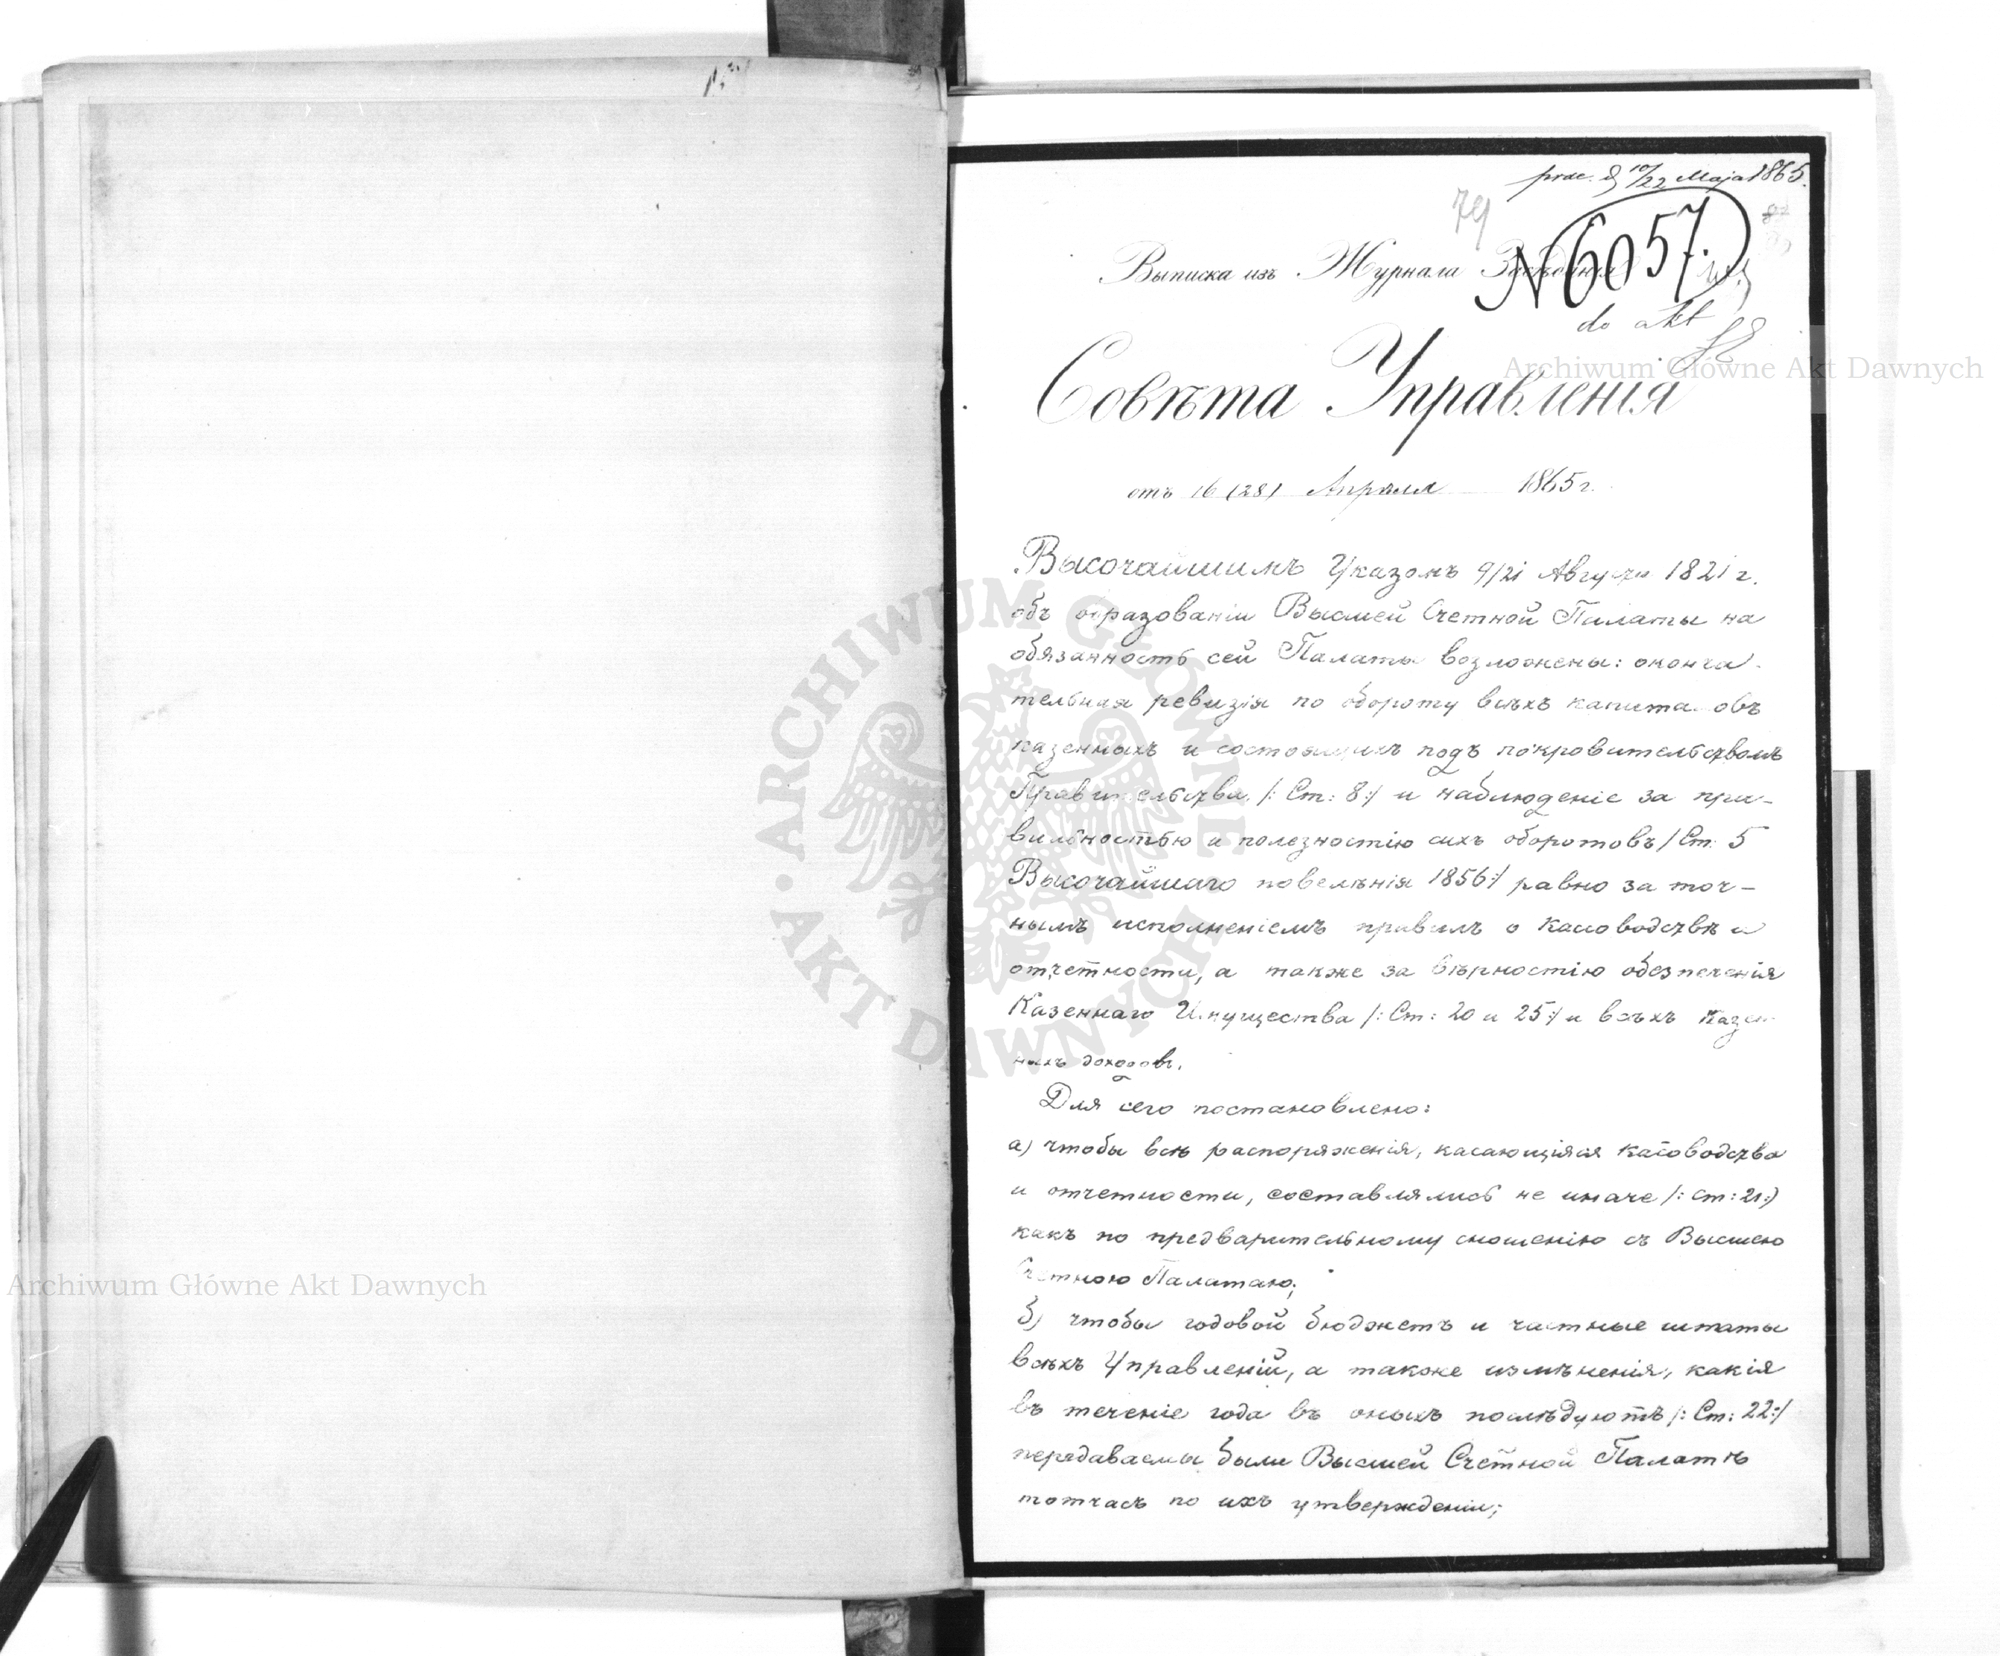 prae. d 10/22 Maja 1865.
79
Выписка изъ Журнала Заседанія
N 6057.
do akt
Совѣта Управленія
отъ 16 (28) Апрѣля 1865 г.
Высочайшимъ Указомъ 9/21 Августа 1821 г.
объ образованіи Высшей Счетной Палаты на
обязанность сей Палаты возложены: оконча-
тельная ревизія по обороту всѣхъ капиталовъ
казенныхъ и состоящихъ подъ покровительствомъ
Правительства /: Ст: 8:/ и наблюденіе за пра-
вильностью и полезностію сихъ оборотовъ /Ст: 5
Высочайшаго повелѣнія 1856:/ равно за точ-
нымъ исполненіемъ правилъ о касоводствѣ и
отчетности, а также за вѣрностію обезпеченія
Казеннаго Имущества /: Ст: 20 и 25:/ и всѣхъ Казен-
ныхъ доходовъ.
Для сего постановлено:
а) чтобы всѣ распоряженія, касающіяся касоводства
и отчетности, составлялись не иначе /: ст: 21:/
какъ по предварительному сношенію съ Высшею
Счетною Палатаю;
б) чтобы годовой бюджетъ и частные штаты
всѣхъ Управленій, а также измѣненія, какія
въ теченіе года въ оныхъ послѣдуютъ /: Ст: 22:/
передаваемы были Высшей Счетной Палатѣ
тотчасъ по ихъ утвержденіи;
Archiwum Główne Akt Dawnych
Archiwum Główne Akt Dawnych
ARCHIWUM GŁÓWNE • AKT DAWNYCH •